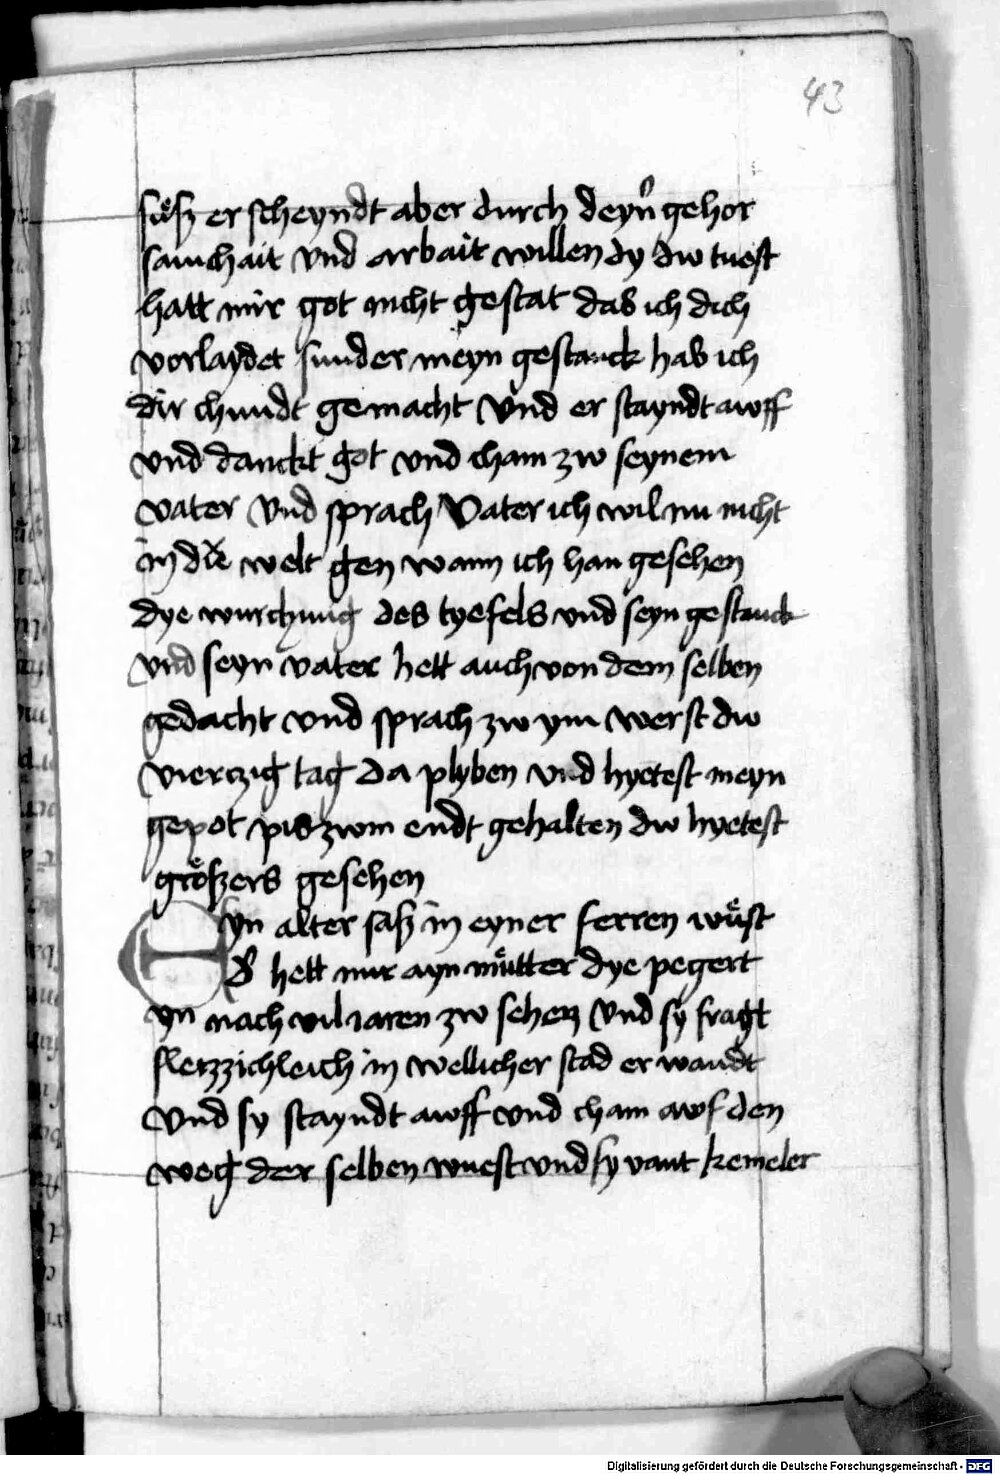 43
süeſz er ſcheyndt aber durch deyn̄ gehor
ſamchait vnd arbait willen dy dw tuest
hatt mir got nicht geſtat das ich dich
vorlaydet ſunder meyn geſtanck hab ich
dir chundt gemacht Vnd er ſtayndt awff
vnd danckt got vnd cham zw ſeynem
vater Vnd ſprach Vater ich wil nu nicht
in die welt gen wann ich han geſehen
dye wurchung des tyefels vnd ſeyn geſtanck
vnd ſeyn vater hett auch von dem ſelben
gedacht vnd ſprach zw ym werſt dw
vierczig tag da plyben vnd hyeteſt meyn
gepot pis zwm endt gehalten dw hyeteſt
gröſzers geſehen
Eyn alter ſaſz in eyner ferren wüſt
hett nur ayn mütter dye pegert
yn nach vil iaren zw ſehen Vnd ſy fragt
fleizzichleich in wellicher ſtad er wandt
Vnd ſy ſtayndt awff vnd cham awf den
weg der ſelben wueſt vnd ſy vant kemeler
Digitalisierung gefördert durch die Deutsche Forschungsgemeinschaft - DFG